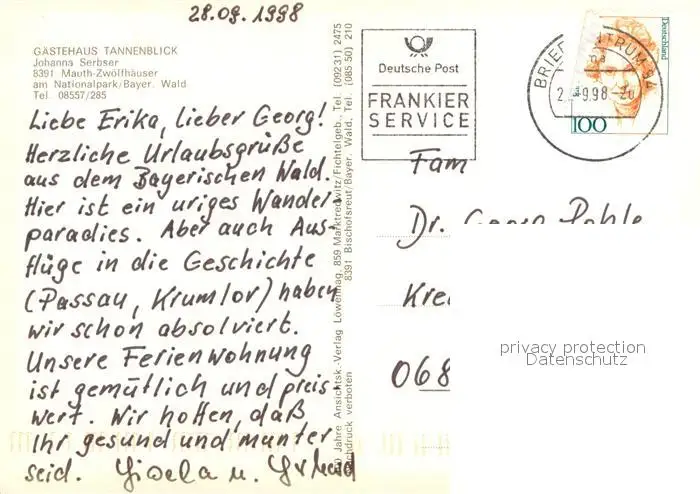 28.09.1998
GÄSTEHAUS TANNENBLICK
Johanna Serbser
8391 Mauth-Zwölfhäuser
am Nationalpark/Bayer. Wald
Tel. 08557/285
Liebe Erika, lieber Georg!
Herzliche Urlaubsgrüße
aus dem Bayerischen Wald.
Hier ist ein uriges Wander-
paradies. Aber auch Aus-
flüge in die Geschichte
(Passau, Krumlov) haben
wir schon absolviert.
Unsere Ferienwohnung
ist gemütlich und preis-
wert. Wir hoffen, daß
Ihr gesund und munter
seid. Gisela u.
Jahre Ansichtsk.-Verlag Löwenhag, 859 Marktredwitz/Fichtelgeb., Tel. (09231) 2475
8391 Bischofsreut/Bayer. Wald, Tel. (08550) 210
Nachdruck verboten
Deutsche Post
FRANKIER
SERVICE
BRIEFZENTRUM 94
Deutschland
100
Fam
Dr. Georg
Kre
068
privacy protection
Datenschutz